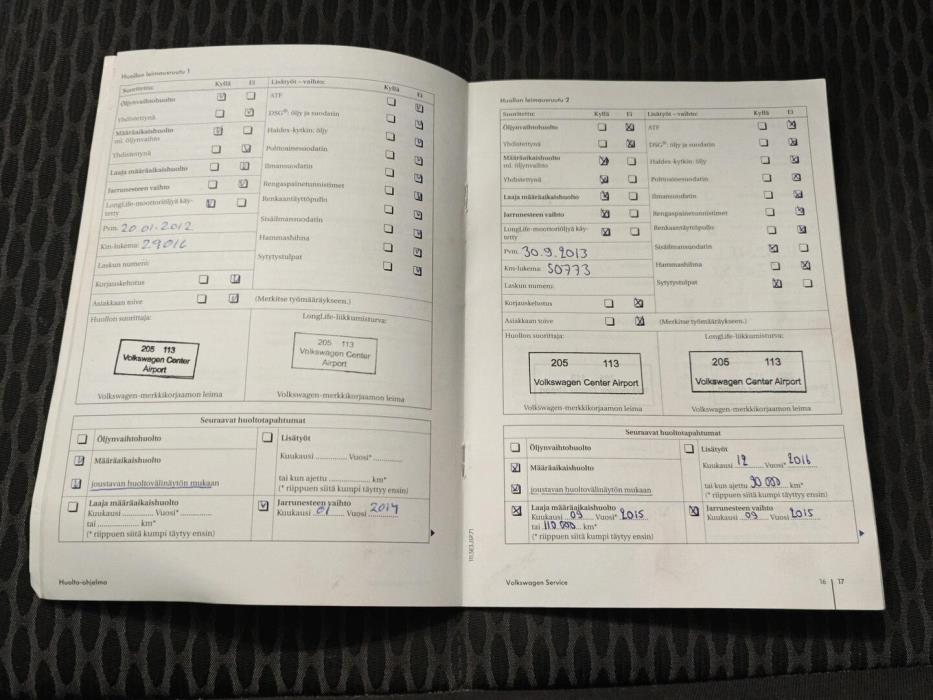 Huollon leimausruutu 1
Suoritettu: Kyllä Ei Lisätyöt – vaihto: Kyllä Ei
Öljynvaihtohuolto
Yhdistettynä
Määräaikaishuolto
ml. öljynvaihto
Yhdistettynä
Laaja määräaikaishuolto
Jarrunesteen vaihto
LongLife-moottoriöljyä käy-
tetty
Pvm. 20.01.2012
Km-lukema: 29016
Laskun numero:
Korjauskehotus
Asiakkaan toive (Merkitse työmääräykseen.)
ATF
DSG®: öljy ja suodatin
Haldex-kytkin: öljy
Polttoainesuodatin
Ilmansuodatin
Rengaspainetunnistimet
Renkaantäyttöpullo
Sisäilmansuodatin
Hammashihna
Sytytystulpat
Huollon suorittaja: LongLife-liikkumisturva:
205 113
Volkswagen Center
Airport
205 113
Volkswagen Center
Airport
Volkswagen-merkkikorjaamon leima Volkswagen-merkkikorjaamon leima
Seuraavat huoltotapahtumat
Öljynvaihtohuolto
Määräaikaishuolto
joustavan huoltovälinäytön mukaan
Lisätyöt
Kuukausi .............. Vuosi*..............
tai kun ajettu .................. km*
(* riippuen siitä kumpi täytyy ensin)
Laaja määräaikaishuolto
Kuukausi ........... Vuosi* ...........
tai .................. km*
(* riippuen siitä kumpi täytyy ensin)
Jarrunesteen vaihto
Kuukausi 01 Vuosi 2014
Huolto-ohjelma
Huollon leimausruutu 2
Suoritettu: Kyllä Ei Lisätyöt – vaihto: Kyllä Ei
Öljynvaihtohuolto
Yhdistettynä
Määräaikaishuolto
ml. öljynvaihto
Yhdistettynä
Laaja määräaikaishuolto
Jarrunesteen vaihto
LongLife-moottoriöljyä käy-
tetty
Pvm. 30.9.2013
Km-lukema: 50773
Laskun numero:
Korjauskehotus
Asiakkaan toive (Merkitse työmääräykseen.)
ATF
DSG®: öljy ja suodatin
Haldex-kytkin: öljy
Polttoainesuodatin
Ilmansuodatin
Rengaspainetunnistimet
Renkaantäyttöpullo
Sisäilmansuodatin
Hammashihna
Sytytystulpat
Huollon suorittaja: LongLife-liikkumisturva:
205 113
Volkswagen Center Airport
205 113
Volkswagen Center Airport
Volkswagen-merkkikorjaamon leima Volkswagen-merkkikorjaamon leima
Seuraavat huoltotapahtumat
Öljynvaihtohuolto
Määräaikaishuolto
joustavan huoltovälinäytön mukaan
Lisätyöt
Kuukausi 12 Vuosi* 2016
tai kun ajettu 90 000 km*
(* riippuen siitä kumpi täytyy ensin)
Laaja määräaikaishuolto
Kuukausi 09 Vuosi* 2015
tai 110 000 km*
(* riippuen siitä kumpi täytyy ensin)
Jarrunesteen vaihto
Kuukausi 09 Vuosi 2015
Volkswagen Service 16 17